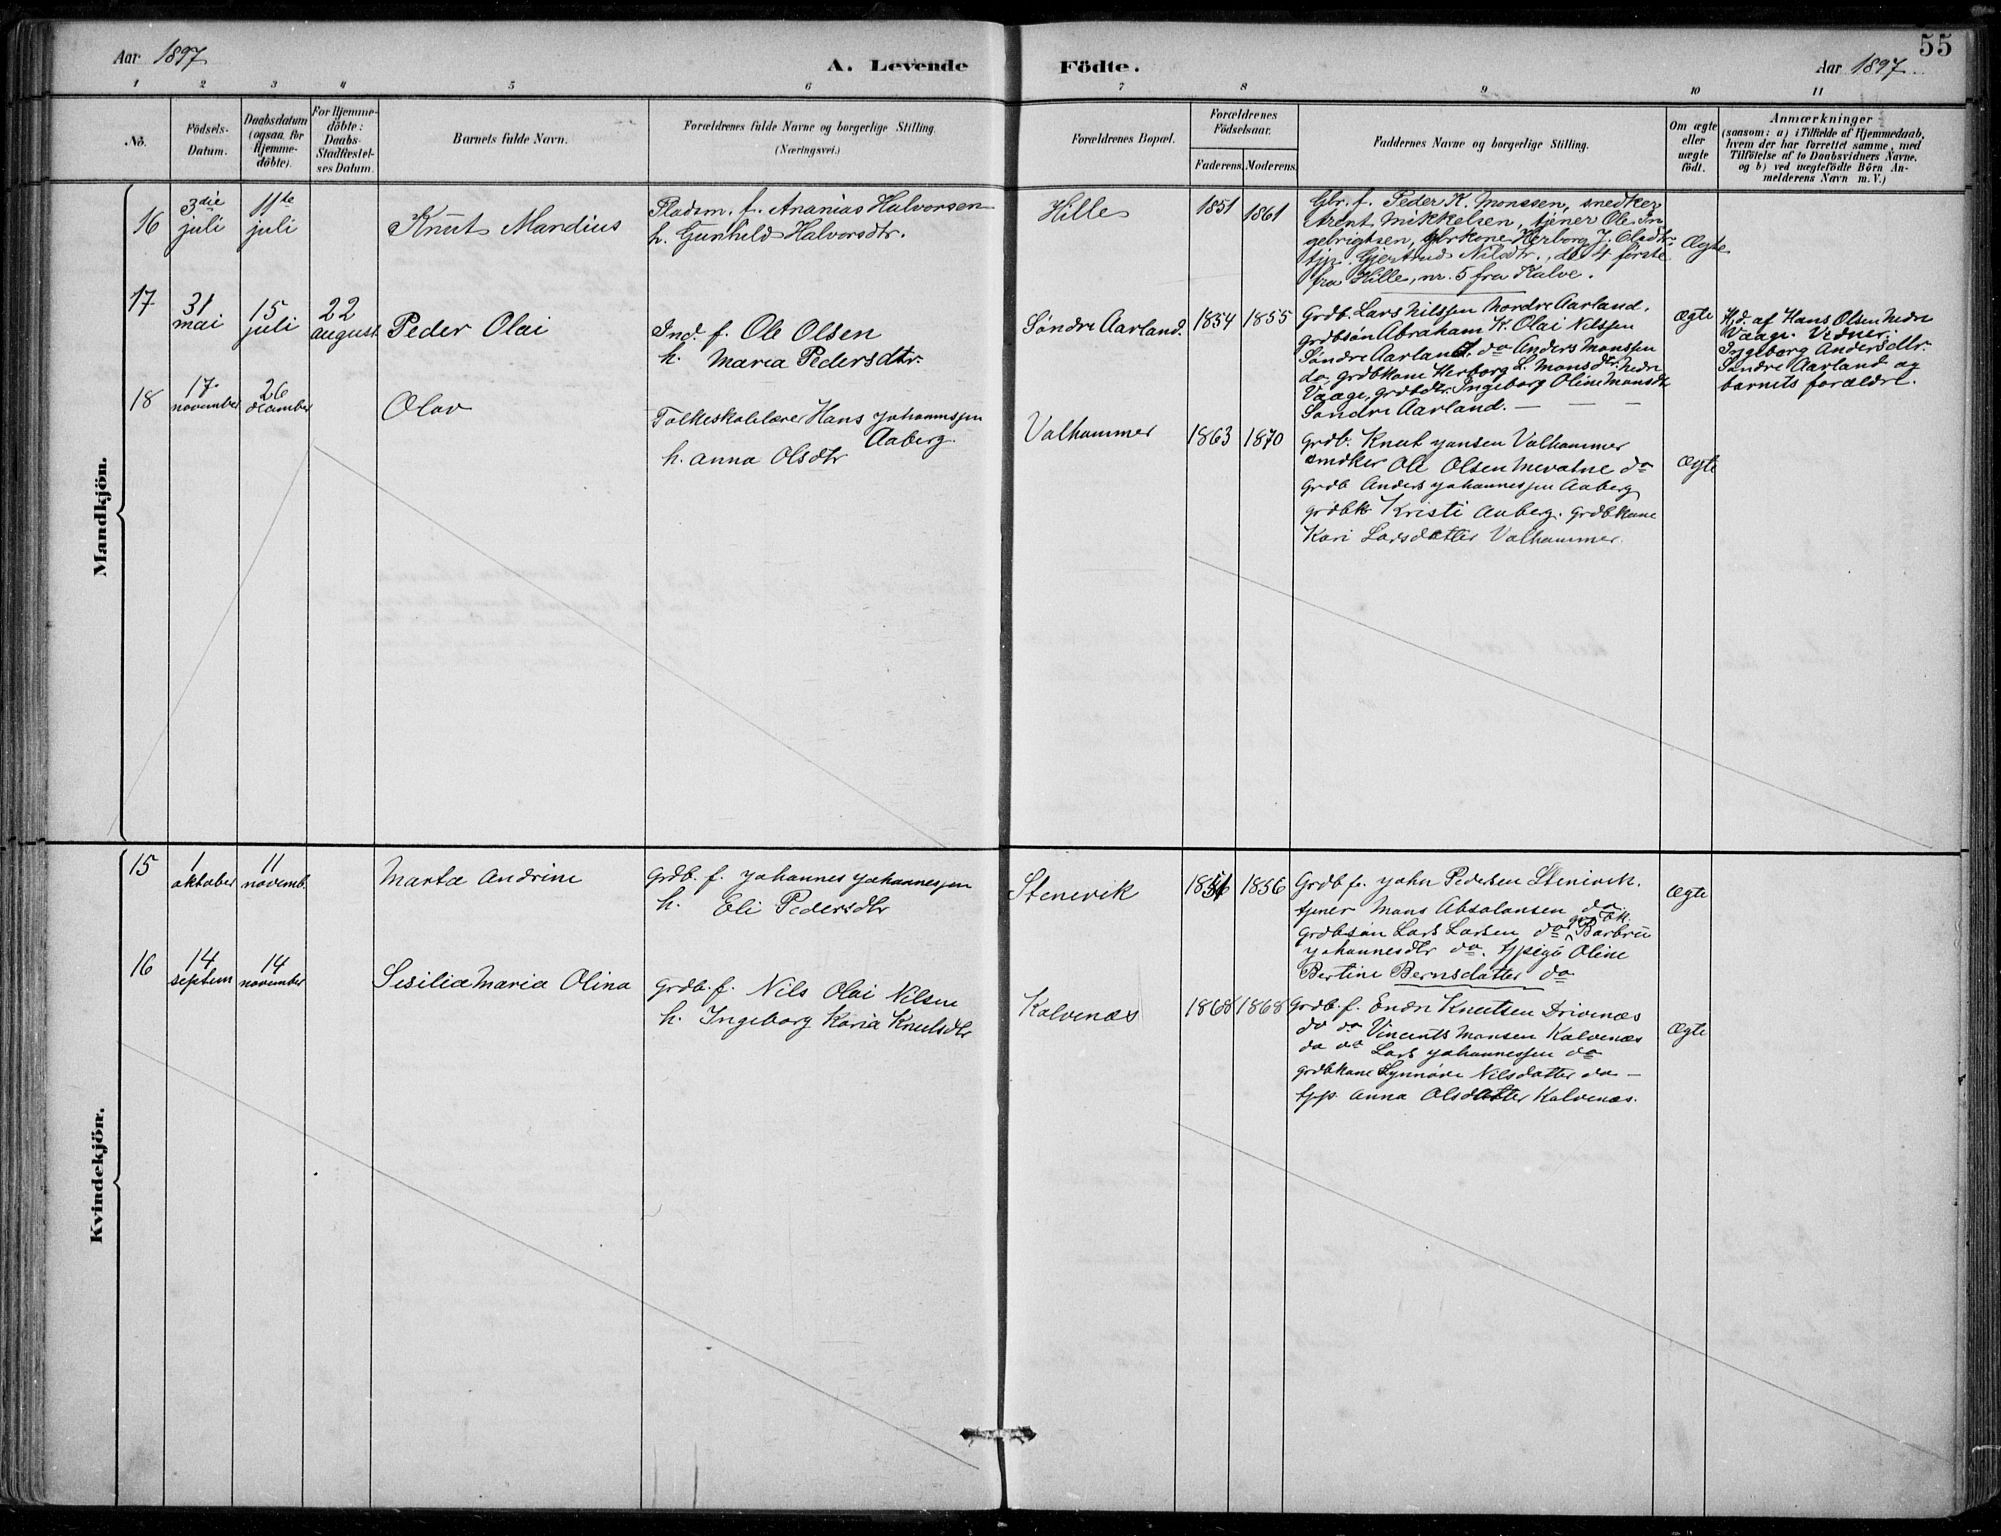 55
Aar 1897
A. Levende
Födte.
Aar 1897
1 2 3 4 5 6 7 8 9 10 11
No.
Födsels-
Datum.
Daabsdatum
(ogsaa for
Hjemme-
döbte).
For Hjemme-
döbte:
Daabs-
Stadfæstel-
ses Datum.
Barnets fulde Navn.
Forældrenes fulde Navne og borgerlige Stilling.
(Næringsvei.)
Forældrenes Bopæl.
Forældrenes
Födselsaar.
Faderens. Moderens.
Faddernes Navne og borgerlige Stilling.
Om ægte
eller
uægte
födt.
Anmærkninger
(saasom: a) i Tilfælde af Hjemmedaab,
hvem der har forrettet samme, med
Tilföielse af to Daabsvidners Navne,
og b) ved uægtefödte Börn An-
melderens Navn m. V.)
Mandkjön.
16
3die
juli
11te
juli
Knut Mandius
Pladsm. f. Ananias Halvorsen
h. Gunhild Halvorsdtr.
Hille
1851
1861
Gbr. f. Peder K. Monssen, snedker
Arent Mikkelsen, tjener Ole In
gebrigtsen, gbrkone Herborg J. Olsdtr.
tjp. Gjertrud Nilsdtr., de 4 første
fra Hille, nr. 5 fra Kalve.
Ægte
17
31
mai
15
juli
22
august
Peder Olai
Ind. f. Ole Olsen
h. Maria Pedersdtr.
Søndre Aarland.
1854
1855
Grdb. Lars Nilssen Nordre Aarland.
grdbsøn Abraham K. Olai Nilssen
Søndre Aarland. do Anders Monssen
do grdbkone Herborg L. Monsdtr. Nedre
Vaage, grdbdtr. Ingeborg Oline Monsdtr
Søndre Aarland. — — —
Ægte
Hjd. af Hans Olsen Nedre
Vaage. Vidner:
Ingeborg Andersdtr.
Søndre Aarland og
barnets forældre.
18
17.
november
26
december
Olav
Folkeskolelærer Hans Johannessen
Aaberg.
h. Anna Olsdtr
Valhammer
1863
1870
Grdb. Knut Jansen Valhammer
smdker Ole Olsen Mevatne do
grdb Anders Johannessen Aaberg
grdbk Kristi Aaberg. Grdbkone
Kari Larsdatter Valhammer.
Ægte
Kvindekjön.
15
1
oktober
11
novemb.
Marta Andrine
Grdb. f. Johannes Johannessen
h. Eli Pedersdtr
Stenevik
1856
Grdb f. John Pedersen Stenivik.
tjener Mons Absalonsen do
grdbsøn Lars Larsen do grdbk. Barbru
Johannesdtr do. tjpige Oline
Bertine Bernsdatter do
Ægte
16
14
septem
14
november
Sesilia Maria Olina
Grdb. f. Nils Olai Nilsen
h. Ingeborg Karia Knutsdtr
Kalvenæs
1868
1868
Grdb. f. Endre Knutsen Drivenæs
do do Vincents Monsen Kalvenæs
do do Lars Johannessen do
grdbkone Synnøve Nilsdatter do —
tjp. Anna Olsdatter Kalvenæs.
Ægte